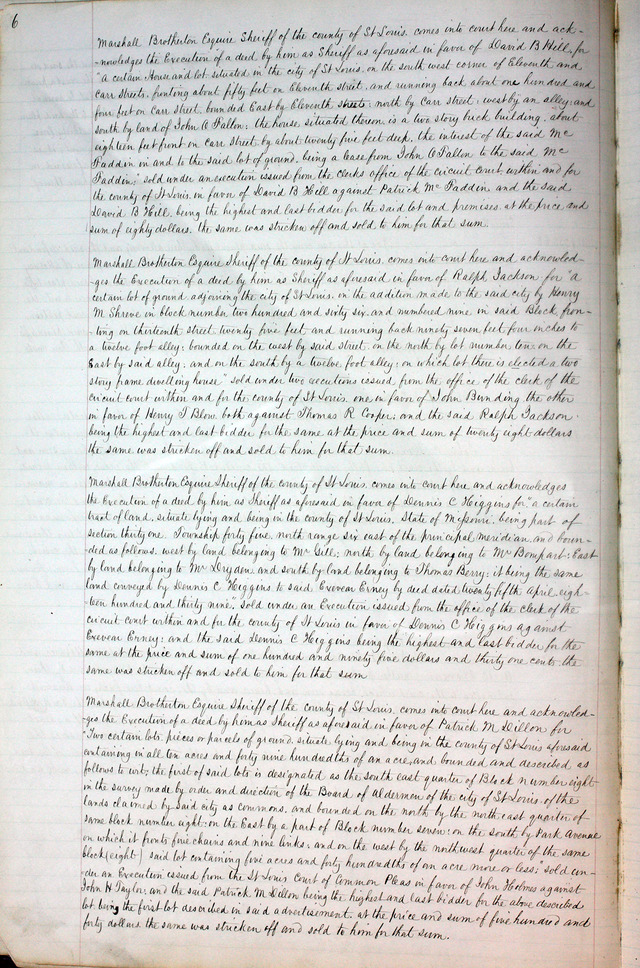 6
Marshall Brotherton Esquire Sheriff of the county of St Louis. comes into court here and ack-
-nowledges the Execution of a deed by him as Sheriff as aforesaid in favor of David B Hill, for
"a certain House and lot situated in the city of St Louis. on the south west corner of Eleventh and
Carr streets, fronting about fifty feet on Eleventh street, and running back about one hundred and
four feet on Carr street. bounded East by Eleventh streets; north by Carr street; west by an alley; and
south by land of John O Fallon; the house situated thereon is a two story brick building, about
eighteen feet front on Carr street by about twenty five feet deep. the interest of the said Mc
Faddin in and to the said lot of ground, being a lease from John O Fallon to the said Mc
Faddin;" sold under an execution issued from the clerks office of the circuit court within and for
the county of St Louis. in favor of David B Hill against Patrick Mc Faddin and the said
David B Hill. being the highest and last bidder for the said lot and premises. at the price and
sum of eighty dollars. the same was stricken off and sold to him for that sum.
Marshall Brotherton Esquire Sheriff of the county of St Louis. comes into court here and acknowled-
-ges the Execution of a deed by him as Sheriff as aforesaid in favor of Ralph Jackson for "a
certain lot of ground adjoining the city of St Louis. in the addition made to the said city by Henry
M Shreve in block number two hundred and sixty six. and numbered nine in said Block fron-
-ting on thirteenth street twenty five feet and running back ninety seven feet four inches to
a twelve foot alley; bounded on the west by said street. on the north by lot number ten; on the
East by said alley; and on the south by a twelve foot alley; on which lot there is elected a two
story frame dwelling house" sold under two executions issued from the office of the clerk of the
circuit court within and for the county of St Louis. one in favor of John Bunding the other
in favor of Henry T Blow. both against Thomas R Cooper; and the said Ralph Jackson.
being the highest and last bidder for the same at the price and sum of twenty eight dollars
the same was stricken off and sold to him for that sum.
Marshall Brotherton Esquire Sheriff of the county of St Louis. comes into court here and acknowledges
the Execution of a deed by him as Sheriff as aforesaid in favor of Dennis C Higgins for "a certain
tract of land, situate lying and being in the county of St Louis, State of Missouri, being part of
section thirty one. Township forty five, north range six east of the principal meridian. and boun-
-ded as follows. west by land belonging to Mr Gill; north by land belonging to Mr Bompart; East
by land belonging to Mr Dryden and south by land belonging to Thomas Berry; it being the same
land conveyed by Dennis C Higgins to said Evevear Erney by deed dated twenty fifth april eigh-
-teen hundred and thirty nine. sold under an Execution issued from the office of the clerk of the
circuit court within and for the county of St Louis in favor of Dennis C Higgins against
Evevear Erney; and the said Dennis C Higgins being the highest and last bidder for the
same at the price and sum of one hundred and ninety five dollars and thirty one cents. the
same was stricken off and sold to him for that sum
Marshall Brotherton Esquire Sheriff of the county of St Louis. comes into court here and acknowled-
-ges the Execution of a deed by him as Sheriff as aforesaid in favor of Patrick M Dillon for
"Two certain lots. pieces or parcels of ground. situate lying and being in the county of St Louis aforesaid
containing in all ten acres and forty nine hundredths of an acre. and bounded and described as
follows to wit; the first of said lots is designated as the south east quarter of Block number eight
in the survey made by order and direction of the Board of Aldermen of the city of St Louis. of the
lands claimed by said city as commons. and bounded on the north by the north east quarter of
same block number eight; on the East by a part of Block number seven; on the south by Park Avenue
on which it fronts five chains and nine links. and on the west by the northwest quarter of the same
block (eight) said lot containing five acres and forty hundredths of an acre more or less;" sold un-
-der an Execution issued from the St Louis Court of Common Pleas in favor of John Holmes against
John H Taylor, and the said Patrick M Dillon being the highest and last bidder for the above described
lot being the first lot described in said advertisement. at the price and sum of five hundred and
forty dollars the same was stricken off and sold to him for that sum.